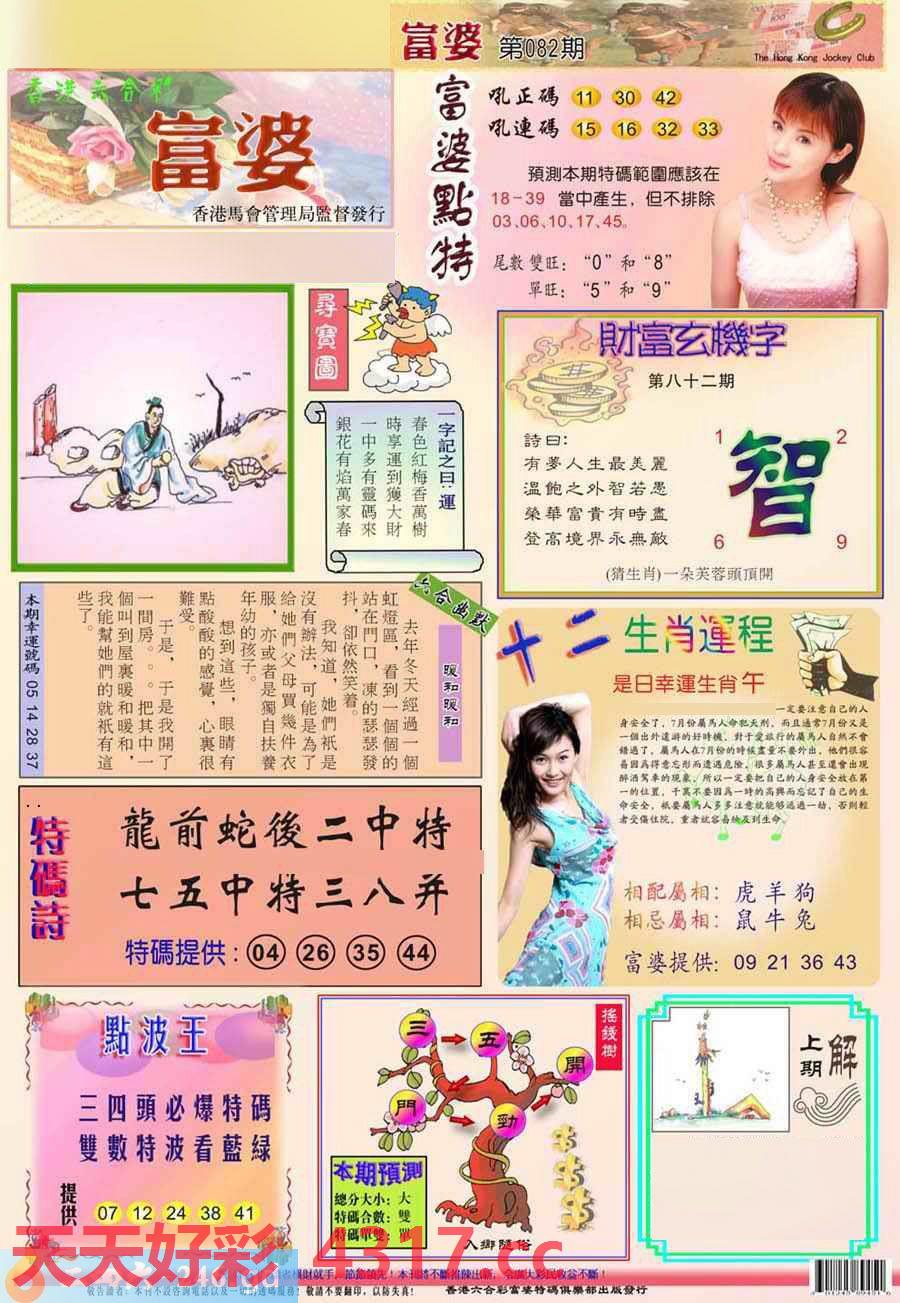 富婆 第082期
The Hong Kong Jockey Club
香港六合彩
富婆
香港馬會管理局監督發行
富婆點特
吼正碼 11 30 42
吼連碼 15 16 32 33
預測本期特碼範圍應該在
18-39 當中產生，但不排除
03、06、10、17、45。
尾數雙旺：“0”和“8”
單旺：“5”和“9”
尋寶圖
一字記之曰：運
春色紅梅香萬樹
時享運到獲大財
一中多有靈碼來
銀花有焰萬家春
財富玄機字
第八十二期
詩曰：
有夢人生最美麗
溫飽之外智若愚
榮華富貴有時盡
登高境界永無敵
1 2
智
6 9
(猜生肖)一朵芙蓉頭頂開
六合幽默
暖和暖和
去年冬天經過一個
虹燈區，看到一個個的
站在門口，凍的瑟瑟發
抖，卻依然笑着。
我知道，她們祇是
沒有辦法，可能是為了
給她們父母買幾件衣
服，亦或者是獨自扶養
年幼的孩子。
想到這些，眼睛有
點酸酸的感覺，心裏很
難受。
于是，于是我開了
一間房。。。把其中一
個叫到屋裏暖和暖和，
我能幫她們的就祇有這
些了。
本期幸運號碼 05 14 28 37
十二生肖運程
是日幸運生肖 午
一定要注意自己的人
身安全了，7月份屬馬人命犯天刑，而且通常7月份又是
一個出外遠游的好時機，對于愛旅行的屬馬人自然不會
錯過了，屬馬人在7月份的時候盡量不要外出，他們很容
易因為得意忘形而遭遇危險，很多屬馬人甚至還會出現
醉酒駕車的現象，所以一定要把自己的人身安全放在第
一的位置，千萬不要因為一時的高興而忘記了自己的生
命安全，祇要屬馬人多多注意就能够逃過一劫，否則輕
者受傷住院，重者就容易危及到生命。
相配屬相：虎羊狗
相忌屬相：鼠牛兔
富婆提供：09 21 36 43
特碼詩
龍前蛇後二中特
七五中特三八并
特碼提供：04 26 35 44
點波王
三四頭必爆特碼
雙數特波看藍綠
提供 07 12 24 38 41
搖錢樹
三 五 開
門 勁
本期預測
總分大小：大
特碼合數：雙
特碼單雙：單
入鄉隨俗
上期解
天天好彩 4317.cc
橫財就手，節節領先！本刊將不斷推陳出新，令廣大彩民收益不斷！
敬告讀者：本刊不設咨詢電話以及一切的透碼服務！敬請不要翻印，以防失真！
香港六合彩富婆特碼俱樂部出版發行